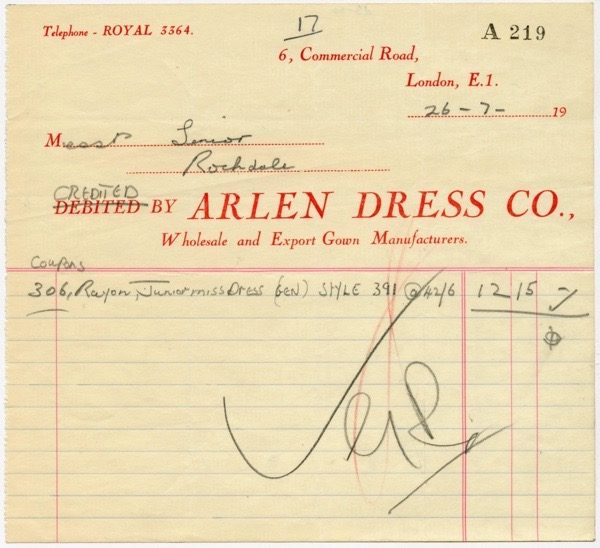 Telephone - ROYAL 3364.
17
A 219
6, Commercial Road,
London, E.1.
26 - 7 - 19
Messrs Senior
Rochdale
CREDITED
DEBITED BY ARLEN DRESS CO.,
Wholesale and Export Gown Manufacturers.
Coupons
306, Rayon, Junior miss Dress (GEN) STYLE 391 @ 42/6 12 15 -